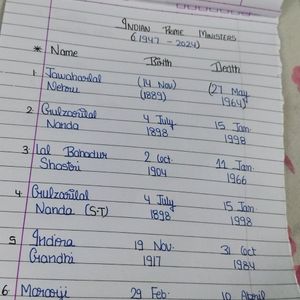 INDIAN PRIME MINISTERS
(1947 - 2024)
* Name Birth Death
1. Jawaharlal Nehru (14 Nov) (1889) (27 May 1964)
2. Gulzarilal Nanda 4 July 1898 15 Jan 1998
3. Lal Bahadur Shastri 2 Oct. 1904 11 Jan. 1966
4. Gulzarilal Nanda (S.T) 4 July 1898 15 Jan 1998
5. Indira Gandhi 19 Nov. 1917 31 Oct 1984
6. Morarji 29 Feb. 10 April